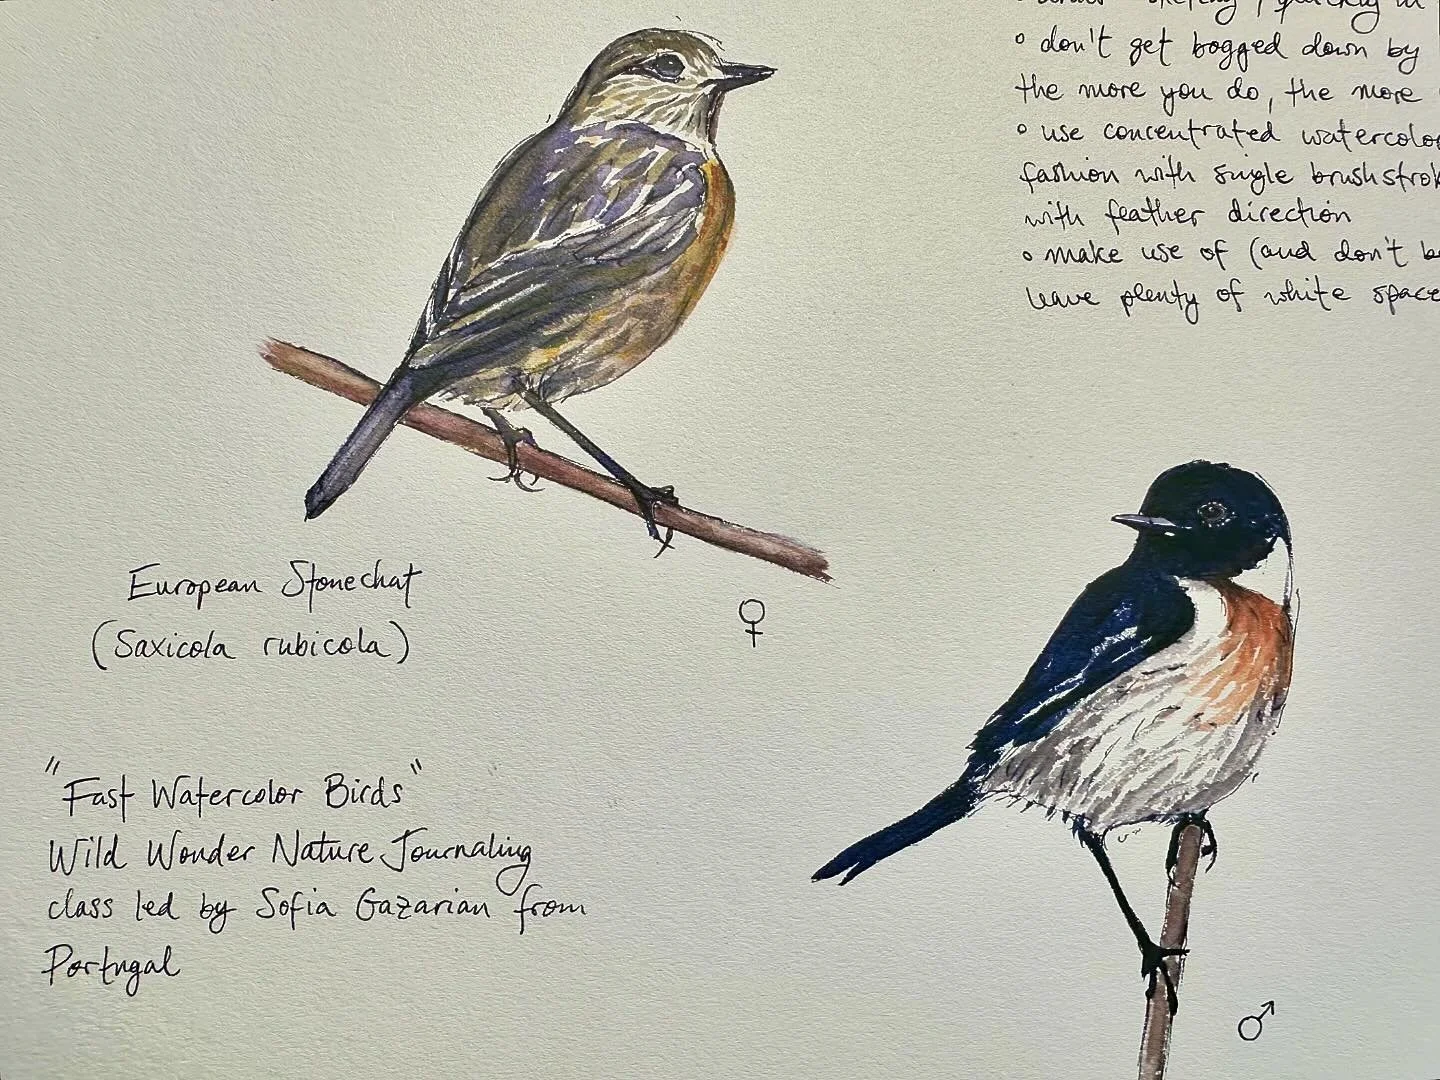 quickly in
° don't get bogged down by
the more you do, the more
° use concentrated watercolo
fashion with single brushstrok
with feather direction
° make use of (and don't b
leave plenty of white space
European Stonechat
(Saxicola rubicola)
♀
"Fast Watercolor Birds"
Wild Wonder Nature Journaling
class led by Sofia Gazarian from
Portugal
♂